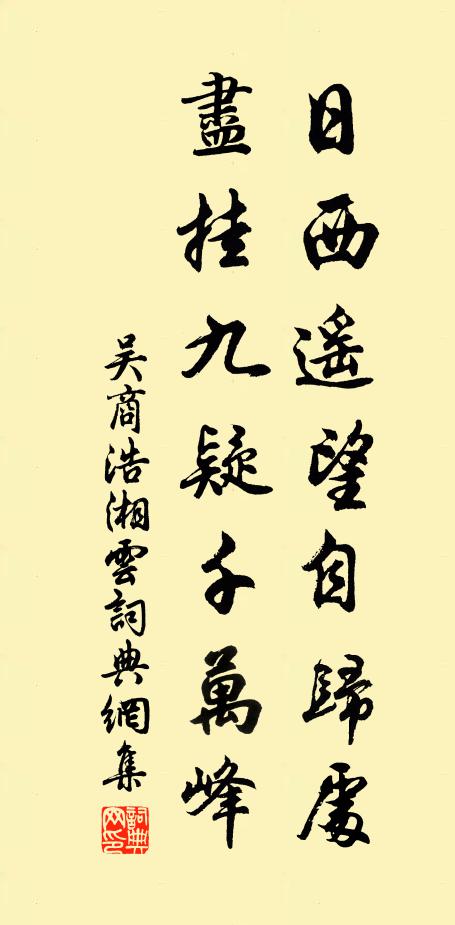 日西遥望自歸處
盡挂九疑千萬峰
吴商浩湘雲詞典網集
詞典網印